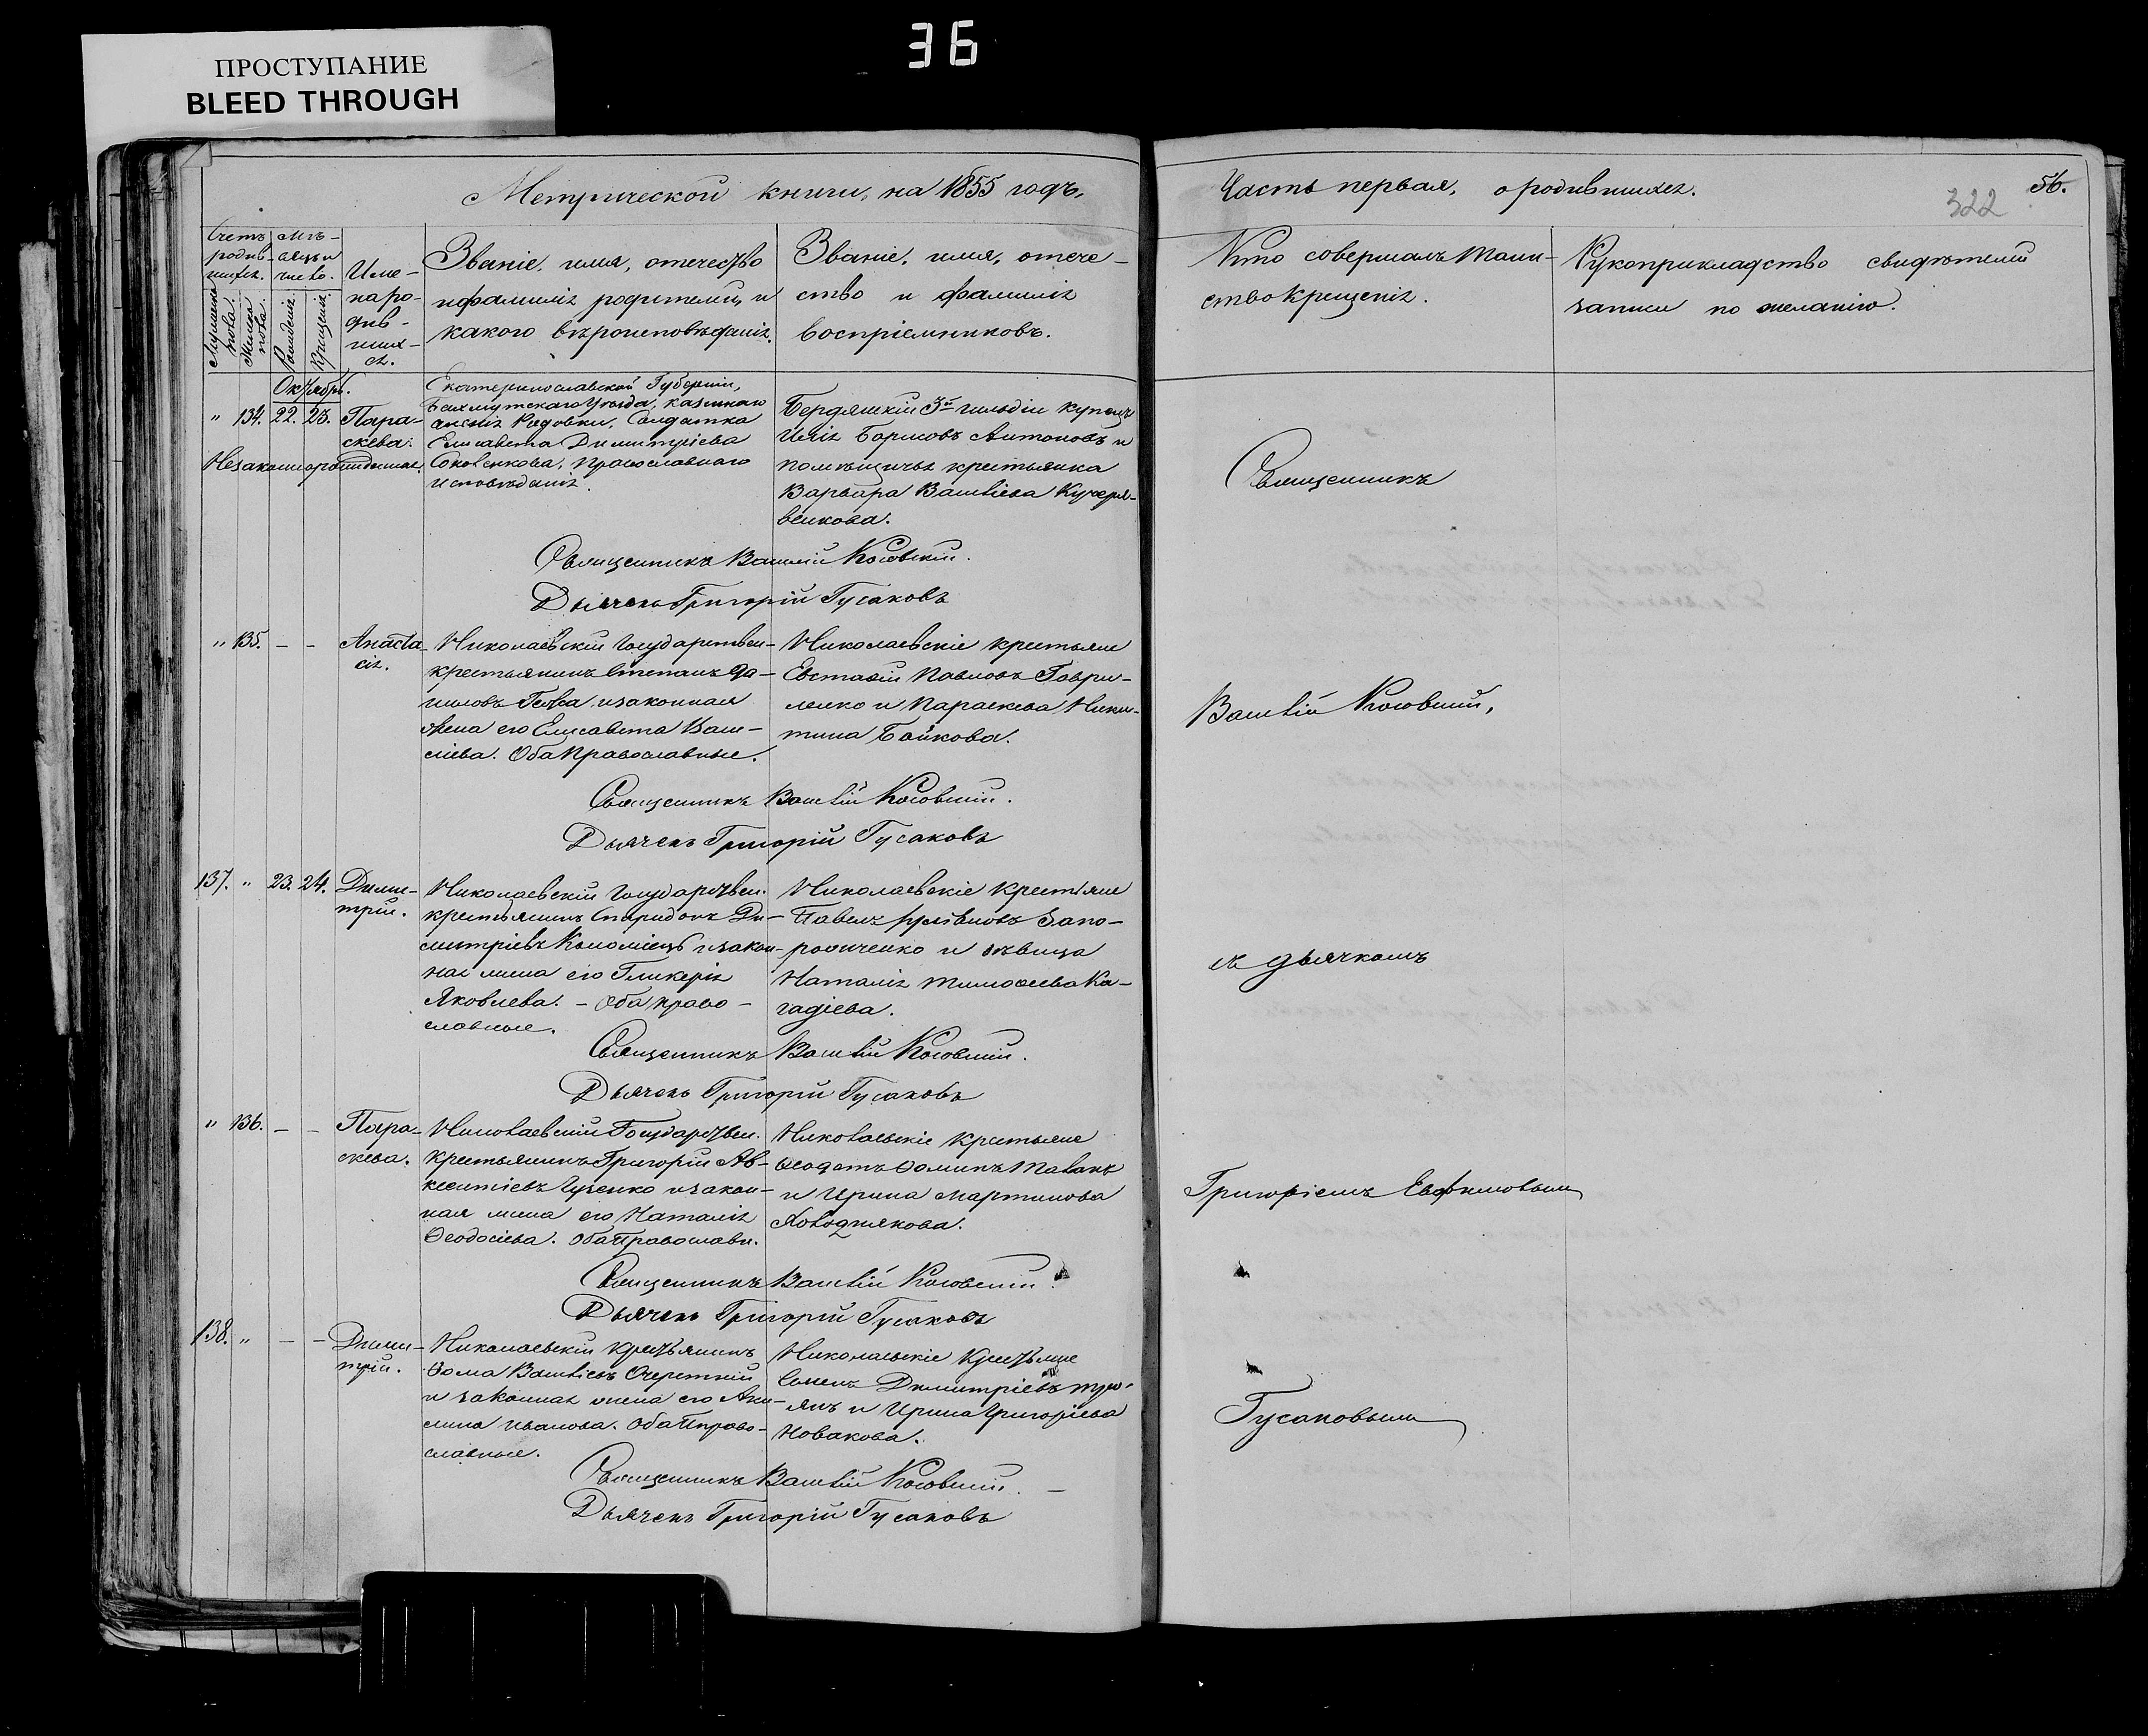 36
ПРОСТУПАНИЕ
BLEED THROUGH
Метрической книги, на 1855 годъ,
Часть первая, о родившихся.
56.
322
Счетъ родив-шихся.
Мужеска пола.
Женска пола.
Мѣ-сяцъ и число.
Рожденія.
Крещенія.
Име-
на ро-
див-
ших-
ся.
Званіе, имя, отечество
и фамилія родителей, и
какого вѣроисповѣданія.
Званіе, имя, отече-
ство и фамилія
воспріемниковъ.
Кто совершалъ Таин-
ство крещенія.
Рукоприкладство свидѣтелей
записи по желанію.
Октябрь.
" 134. 22. 23.
Пара-
скева.
Незаконнорожденная.
Екатеринославской Губерніи,
Бахмутскаго Уѣзда, казеннаго
селенія Солдатка
Елисавета Димитріева
Соковенкова, православнаго
исповѣданія.
Бердянскій 3й гильдіи купецъ
Илія Борисовъ Антоновъ и
помѣщичья крестьянка
Варвара Василіева Кучеря-
венкова.
Священникъ
Священникъ Василій Косовскій.
Дьячекъ Григорій Гусаковъ
" 135. - -
Анаста-
сія.
Николаевскій Государствен-
крестьянинъ Степанъ Да-
ниловъ и законная
жена его Елисавета Васи-
ліева. Оба Православные.
Николаевскіе крестьяне
Евстафій Павловъ Гаври-
ленко и Параскева Ники-
тина Байкова.
Василій Косовскій,
Священникъ Василій Косовскій.
Дьячекъ Григорій Гусаковъ
137. " 23. 24.
Дими-
трій.
Николаевскій Государствен.
крестьянинъ Спиридонъ Ди-
митріевъ Коломіецъ и закон-
ная жена его Гликерія
Яковлева. - Оба право-
славные.
Николаевскіе крестьяне
Павелъ Запо-
рожченко и дѣвица
Наталія Тимофеева Ка-
гадіева.
съ дьячкомъ
Священникъ Василій Косовскій.
Дьячекъ Григорій Гусаковъ
" 136. - -
Пара-
скева.
Николаевскій Государствен.
крестьянинъ Григорій Ав-
ксентіевъ Гузенко и закон-
ная жена его Наталія
Ѳеодосіева. Оба Православн.
Николаевскіе крестьяне
Ѳеодотъ Ѳоминъ
и Ирина Мартинова
Григоріемъ Евфимовымъ
Священникъ Василій Косовскій.
Дьячекъ Григорій Гусаковъ
138. " - -
Дими-
трій.
Николаевскій крестьянинъ
Ѳома Васильевъ Очереткій
и законная жена его Аки-
лина Иванова. Оба Право-
славные.
Николаевскіе крестьяне
Семенъ Димитріевъ
и Ирина Григоріева
Новакова.
Гусаковымъ
Священникъ Василій Косовскій. -
Дьячекъ Григорій Гусаковъ